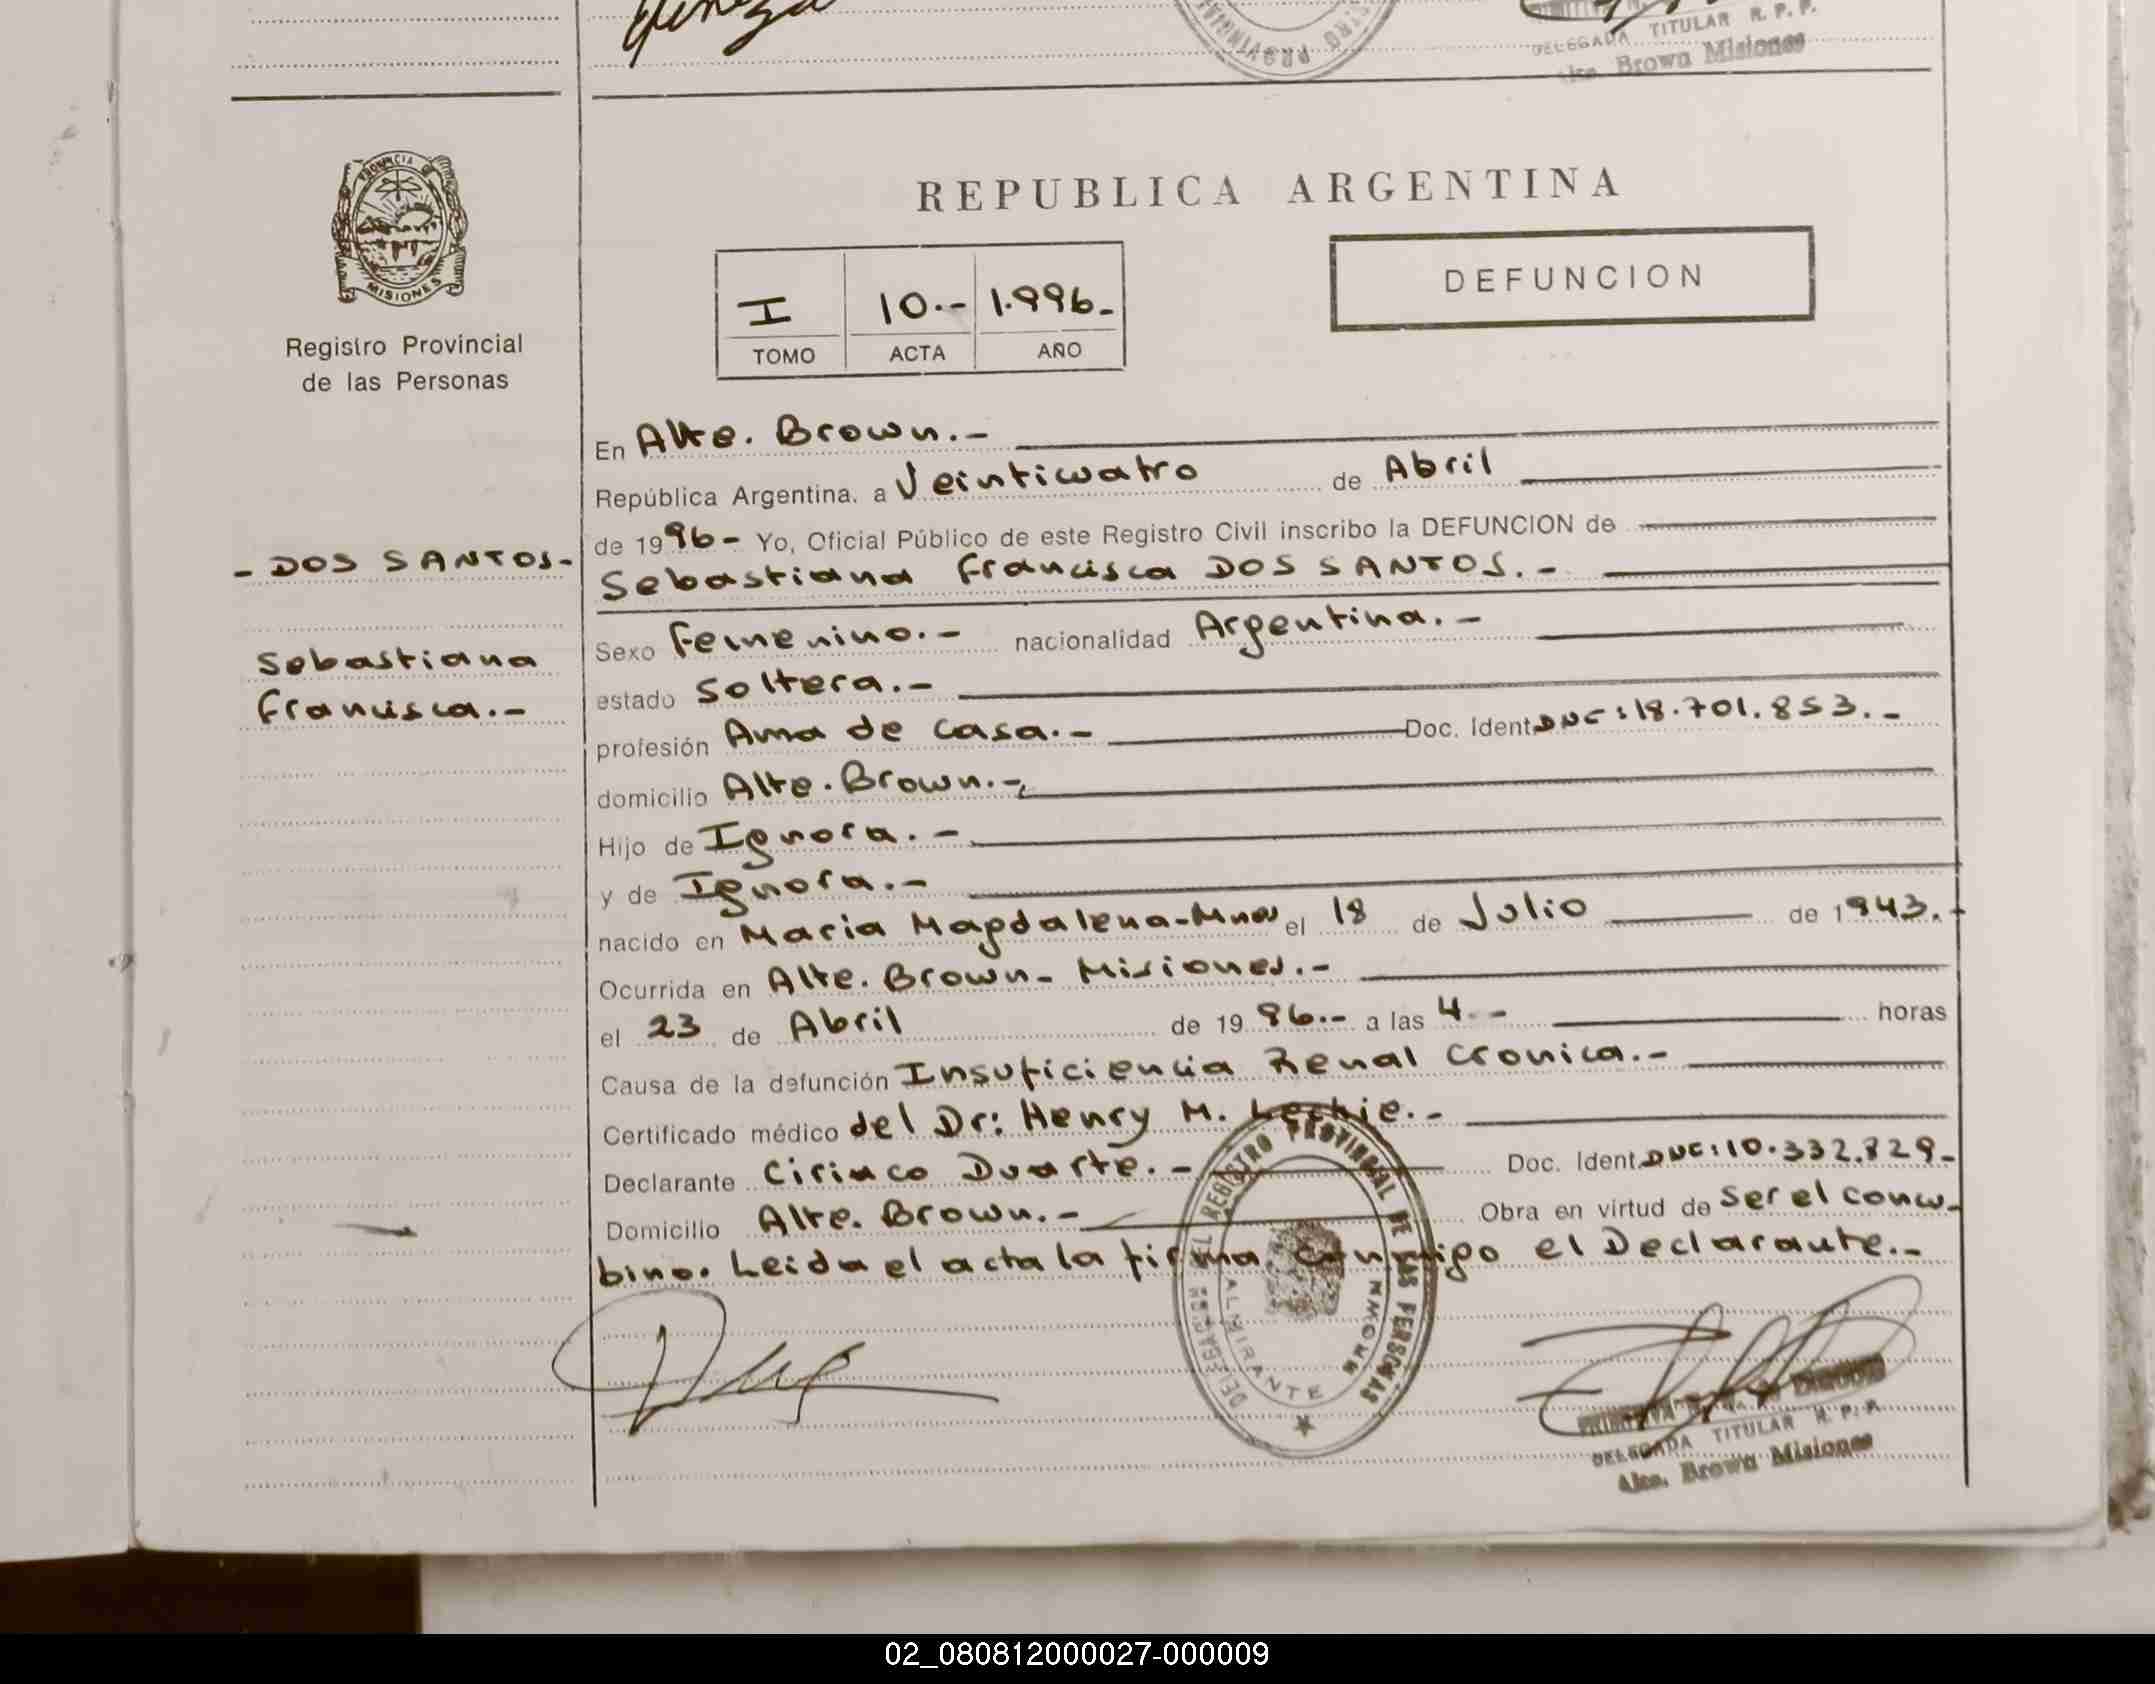 TITULAR R. P. P.
Brown Misiones
PROVINCIA DE
MISIONES
Registro Provincial
de las Personas
REPUBLICA ARGENTINA
DEFUNCION
I 10.- 1.996.-
TOMO ACTA AÑO
En Alte. Brown.-
República Argentina, a Veinticuatro de Abril
de 1996- Yo, Oficial Público de este Registro Civil inscribo la DEFUNCION de
- DOS SANTOS-
Sebastiana Francisca DOS SANTOS.-
Sexo Femenino.- nacionalidad Argentina.-
Sebastiana
Francisca.-
estado Soltera.-
profesión Ama de Casa.- Doc. Ident. DNC: 18.701.853.-
domicilio Alte. Brown.-
Hijo de Ignora.-
y de Ignora.-
nacido en Maria Magdalena-Mnes el 18 de Julio de 1943.-
Ocurrida en Alte. Brown- Misiones.-
el 23 de Abril de 1996.- a las 4.- horas
Causa de la defunción Insuficiencia Renal Cronica.-
Certificado médico del Dr: Henry M. Leckie.-
Declarante Ciriaco Duarte.- Doc. Ident. DNC: 10.332.829-
Domicilio Alte. Brown.- Obra en virtud de ser el concu-
bino. Leida el acta la firma conmigo el Declarante.-
DELEGACION DEL REGISTRO PROVINCIAL DE LAS PERSONAS
ALMIRANTE BROWN
DELEGADA TITULAR R. P. P.
Alte. Brown Misiones
02_080812000027-000009